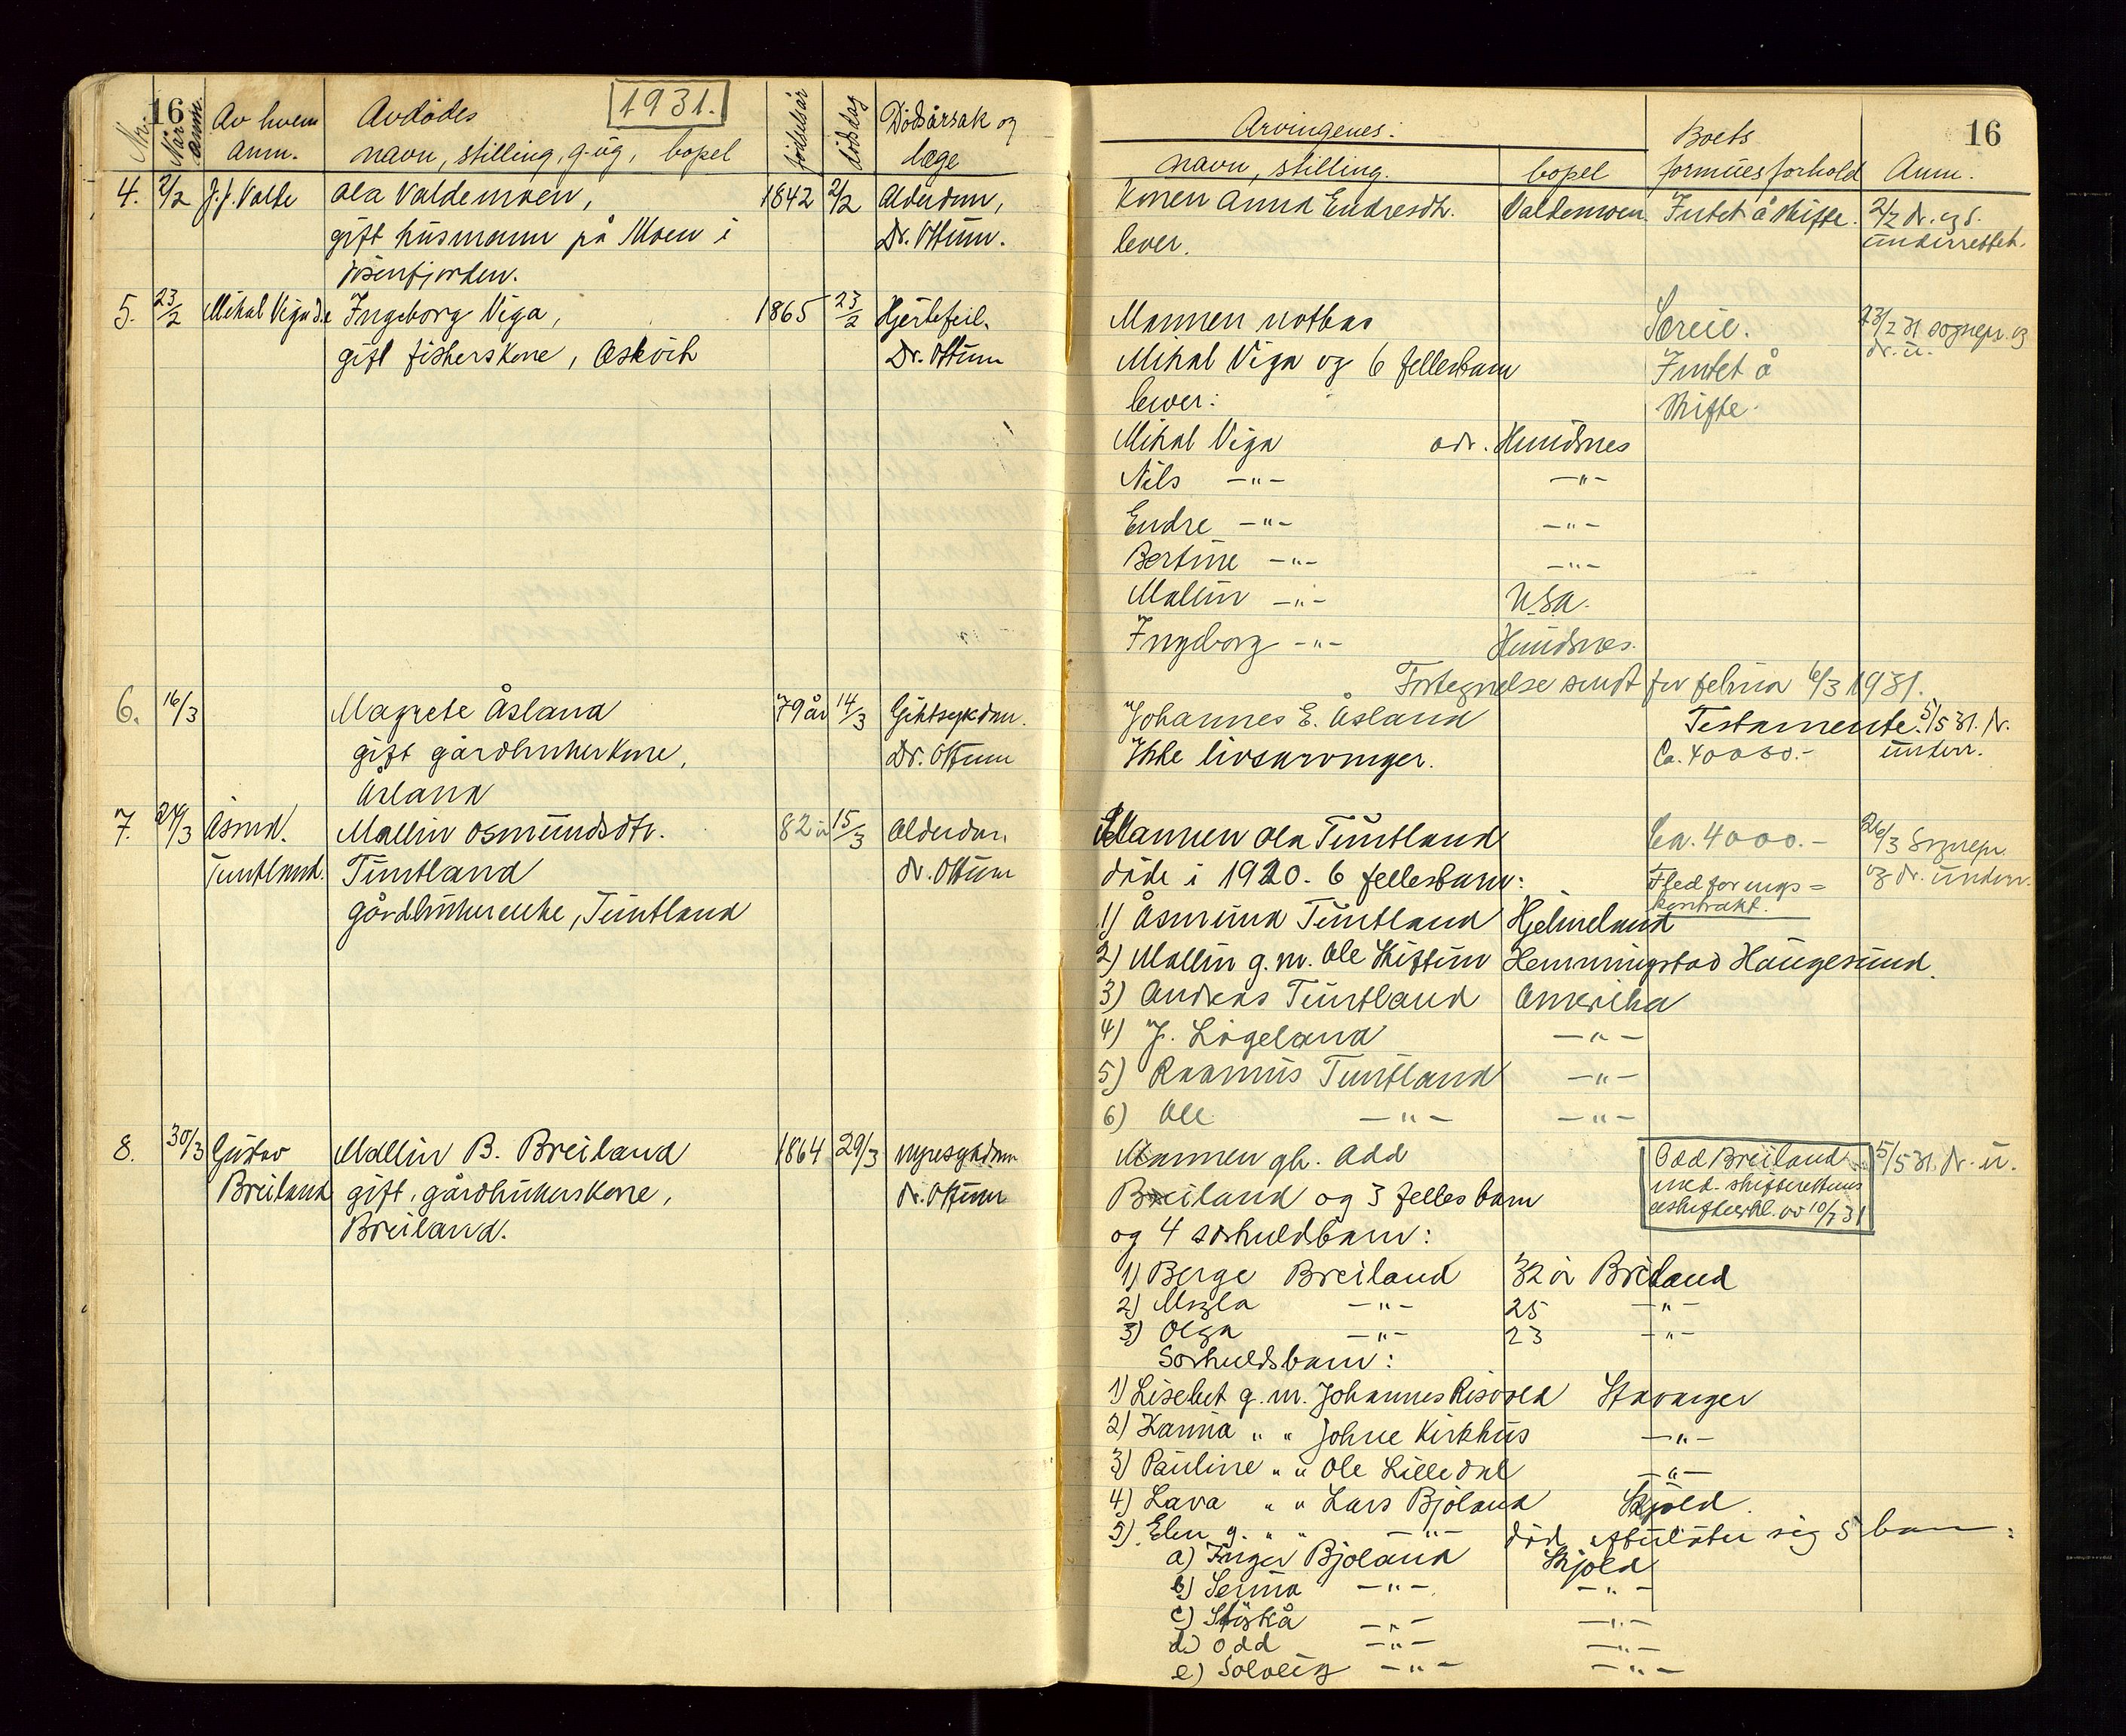 16
1931.
Nr. Når anm. Av hvem anm. Avdødes navn, stilling, g. ug, bopel fødselsår dødsdag Dødsårsak og læge
4. 2/2 J. J. Valde Ola Valdemoen, 1842 2/2 Alderdom,
gift husmann på Moen i Dr. Ottum.
Jøsenfjorden.
5. 23/2 Mikal Viga d.e. Ingeborg Viga, 1865 23/2 Hjertefeil.
gift fiskerskone, Askvik Dr. Ottum
6. 16/3 Magrete Åsland 79 år 14/3 Giktsykdom.
gift gårdbrukerkone, Dr. Ottum
Åsland
7. 24/3 Åsmd. Mallin Osmundsdtr. 82 år 15/3 Alderdom
Tuntland. Tuntland dr. Ottum
gårdbrukerenke, Tuntland
8. 30/3 Gustav Mallin B. Breiland 1864 29/3 nyresykdom
Breiland gift, gårdbrukerskone, dr. Ottum
Breiland.
16
Arvingenes: Boets
navn, stilling. bopel formuesforhold Anm.
Konen Anna Endresdtr. Valdemoen Intet å skifte. 2/2 dr. og s.
lever. underrettet.
Mannen notbas Særeie. 23/2 31 sognepr. og
Mikal Viga og 6 fellesbarn Intet å dr. u.
lever: skifte.
Mikal Viga adr. Hundsnes
Nils —"— —"—
Endre —"— —"—
Bertine —"— —"—
Mallin —"— USA.
Ingeborg —"— Hundsnes.
Fortegnelse sendt for februar 6/3 1931.
Johannes E. Åsland Testamente. 5/5 31. dr.
Ikke livsarvinger. Ca. 40000.- underr.
Mannen Ola Tuntland Ca. 4000.- 26/3 Sognepr.
døde i 1920. 6 fellesbarn: Fledforings= og dr. underr.
kontrakt.
1) Åsmund Tuntland Hjelmeland
2) Mallin g. m. Ole Skiftun Hemmingstad Haugesund.
3) Andreas Tuntland Amerika
4) J. Ligeland —"—
5) Rasmus Tuntland —"—
6) Ole —"— —"—
Mannen gb. Odd Odd Breiland 5/5 31. dr. u.
Breiland og 3 fellesbarn med skifterettens
og 4 særkuldbarn: uskifteerkl. av 10/7 31
1) Berge Breiland 32 år Breiland
2) Magla —"— 25 —"—
3) Olga —"— 23 —"—
Særkuldsbarn:
1) Lisebet g. m. Johannes Risvold Stavanger
2) Hanna " " Johne Kirkhus —"—
3) Pauline " " Ole Lilledal —"—
4) Lava " " Lars Bjoland Skjold.
5) Elen g. " " —"— død, efterlater sig 5 barn:
a) Inger Bjoland Skjold
b) Serina —"— —"—
c) —"— —"—
d) Odd —"— —"—
e) Solveig —"— —"—